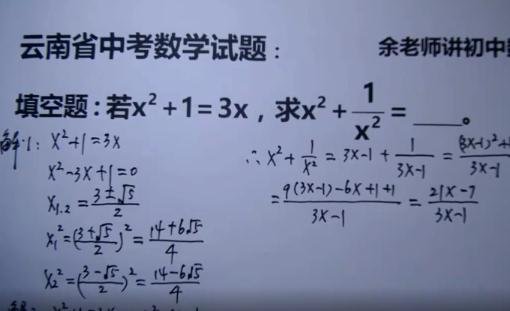 云南省中考数学试题：
余老师讲初中数
填空题：若x²+1=3x，求x²+1/x²=____。
解1: x²+1=3x
x²-3x+1=0
x₁.₂=(3±√5)/2
x₁²=((3+√5)/2)²=(14+6√5)/4
x₂²=((3-√5)/2)²=(14-6√5)/4
∴x²+1/x²=3x-1+1/(3x-1)=((3x-1)²+1)/(3x-1)
=(9(3x-1)-6x+1+1)/(3x-1)=(21x-7)/(3x-1)